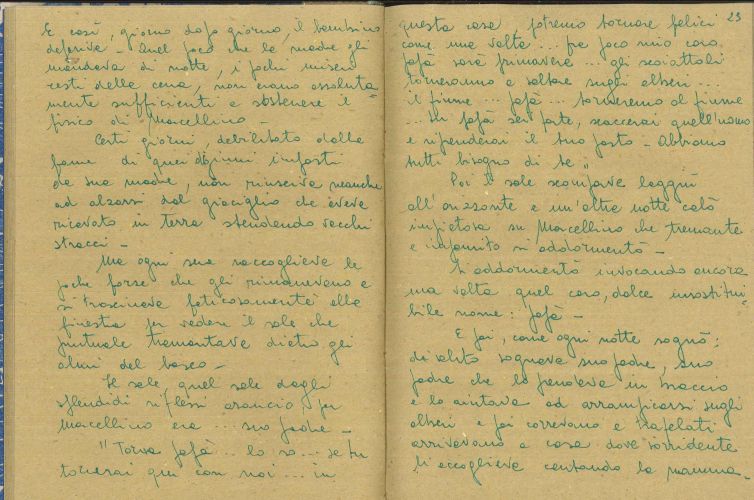 E così, giorno dopo giorno, il bambino
deperiva - Quel poco che la madre gli
mandava di notte, i pochi miseri
resti della cena, non erano assoluta=
mente sufficienti a sostenere il
fisico di Marcellino -
Certi giorni, debilitato dalla
fame di quei digiuni imposti
da sua madre, non riusciva neanche
ad alzarsi dal giaciglio che aveva
ricavato in terra stendendo vecchi
stracci -
Ma ogni sera raccoglieva le
poche forze che gli rimanevano e
si trascinava faticosamente alla
finestra per vedere il sole che
puntuale tramontava dietro gli
olmi del bosco -
Il sole quel sole dagli
splendidi riflessi arancio, per
Marcellino era ... suo padre -
"Torna papà .. lo so ... se tu
tornerai qui con noi ... in
23
questa casa potremo tornare felici
come una volta ... fra poco mio caro
papà sarà primavera ... gli scoiattoli
torneranno a saltare sugli alberi ...
il fiume ... papà ... torneremo al fiume
... tu papà sei forte, scaccerai quell'uomo
e riprenderai il tuo posto - Abbiamo
tutti bisogno di te"
Poi il sole scompave laggiù
all'orizzonte e un'altra notte calò
impietosa su Marcellino che tremante
e infreddolito si addormentò -
Si addormentò invocando ancora
una volta quel caro, dolce insostitui=
bile nome: papà -
E poi, come ogni notte sognò:
di solito sognava suo padre, suo
padre che lo prendeva in braccio
e lo aiutava ad arrampicarsi sugli
alberi e poi correvano e trafelati
arrivavano a casa dove sorridente
li accoglieva cantando la mamma -